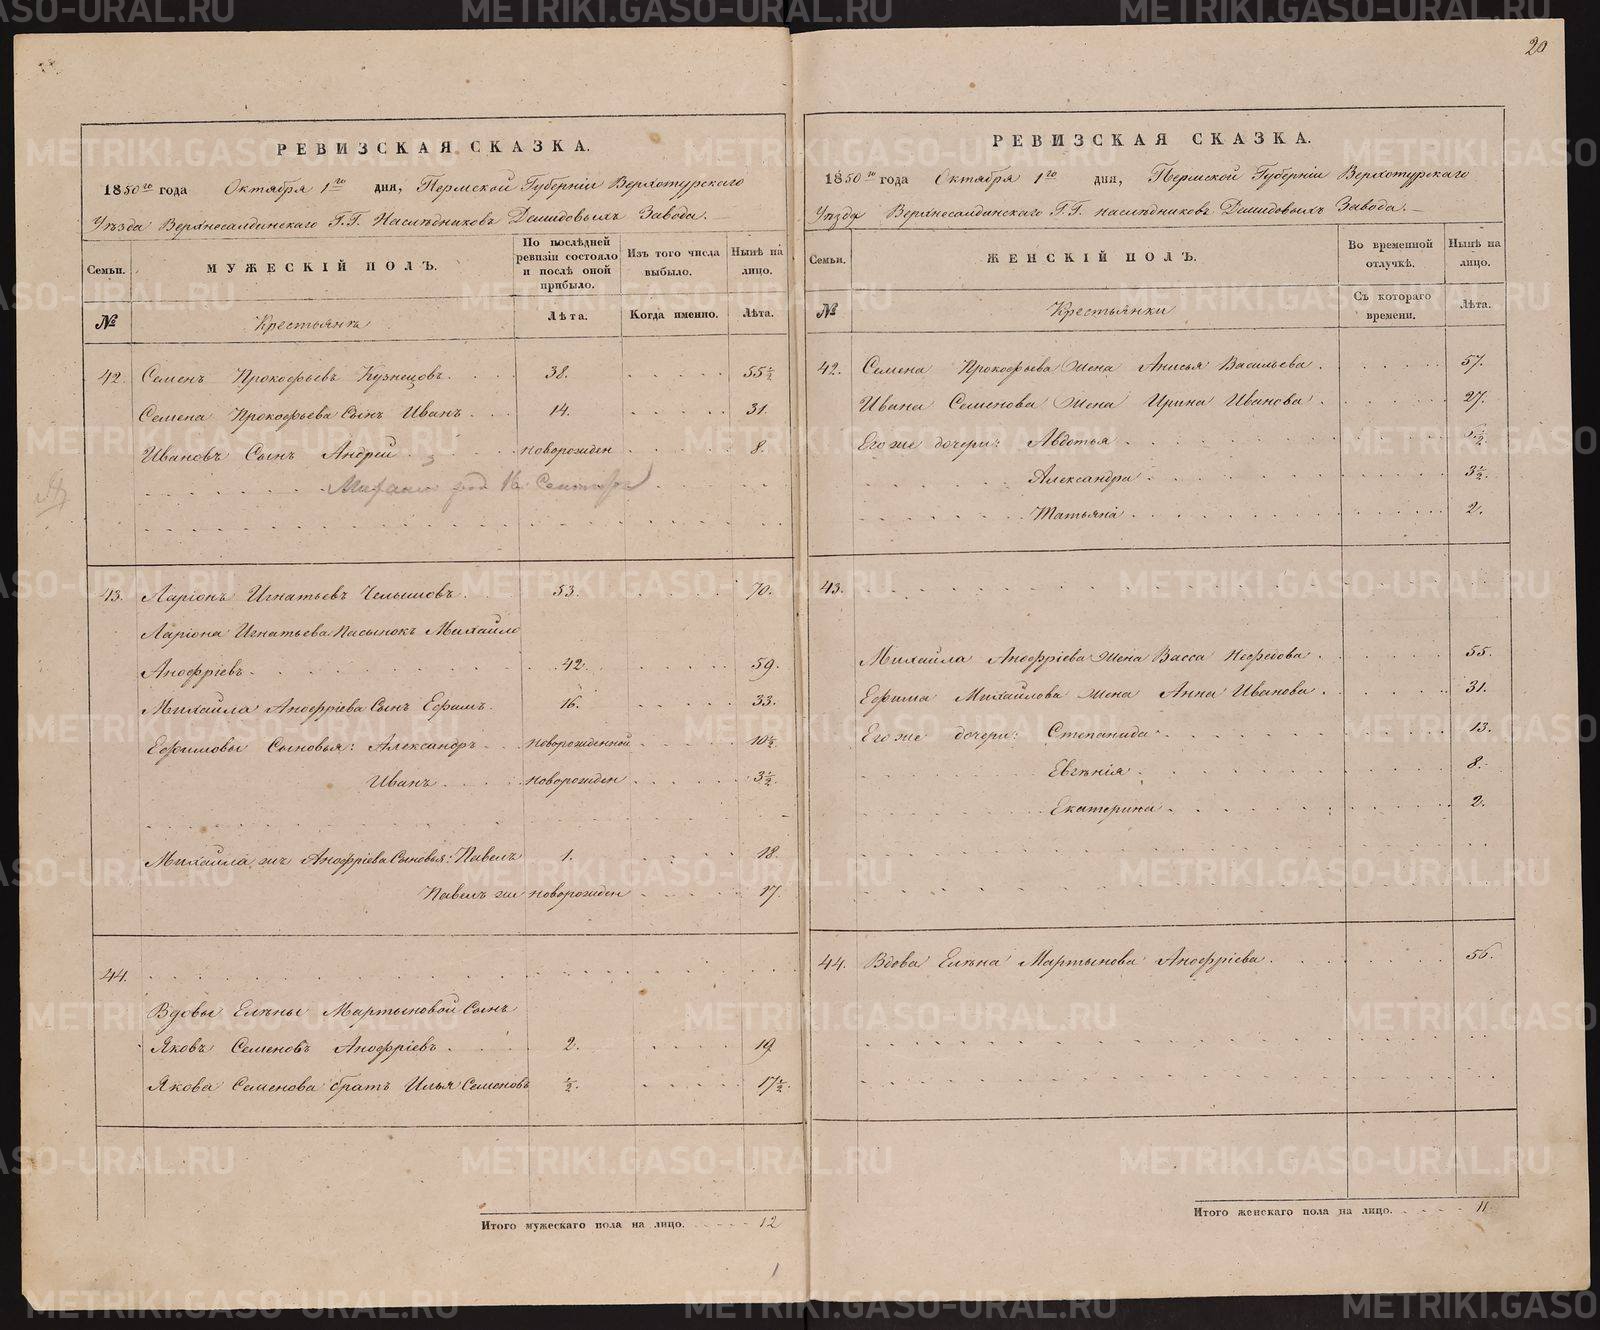 20
РЕВИЗСКАЯ СКАЗКА.
1850го года Октября 1го дня, Пермской Губерніи Верхотурскаго
Уѣзда Верхнесалдинскаго Г.Г. Наслѣдниковъ Демидовыхъ Завода.
Семьи.
МУЖЕСКІЙ ПОЛЪ.
По послѣдней ревизіи состояло и послѣ оной прибыло.
Изъ того числа выбыло.
Нынѣ на лицо.
№
Крестьянъ
Лѣта.
Когда именно.
Лѣта.
42. Семенъ Прокофьевъ Кузнецовъ. 38. 55½
Семена Прокофьева Сынъ Иванъ. 14. 31.
Ивановъ Сынъ Андрей новорожден 8.
род 16 Сентября
43. Ларіонъ Игнатьевъ Челышовъ. 53. 70.
Ларіона Игнатьева Пасынокъ Михайло
Анофріевъ. 42. 59.
Михайла Анофріева Сынъ Ефимъ. 16. 33.
Ефимовы Сыновья: Александръ новорожденной 10½
Иванъ новорожден 3½
Михайла же Анофріева Сыновья: Павелъ 1. 18.
Павелъ же новорожден 17.
44.
Вдовы Елены Мартыновой Сынъ
Яковъ Семеновъ Анофріевъ. 2. 19
Якова Семенова братъ Илья Семеновъ ½. 17½.
Итого мужескаго пола на лицо. 12
РЕВИЗСКАЯ СКАЗКА.
1850го года Октября 1го дня, Пермской Губерніи Верхотурскаго
Уѣзда Верхнесалдинскаго Г.Г. наслѣдниковъ Демидовыхъ Завода.
Семьи.
ЖЕНСКІЙ ПОЛЪ.
Во временной отлучкѣ.
Нынѣ на лицо.
№
Крестьянки
Съ котораго времени.
Лѣта.
42. Семена Прокофьева Жена Анисья Васильева. 57.
Ивана Семенова Жена Ирина Иванова. 27.
Его же дочери: Авдотья
Александра 3½.
Татьяна 2.
43.
Михайла Анофріева Жена Васса Нефедова. 55.
Ефима Михайлова жена Анна Иванова. 31.
Его же дочери: Степанида 13.
Евгенія 8.
Екатерина 2.
44. Вдова Елена Мартынова Анофріева. 56.
Итого женскаго пола на лицо. 11
METRIKI.GASO-URAL.RU